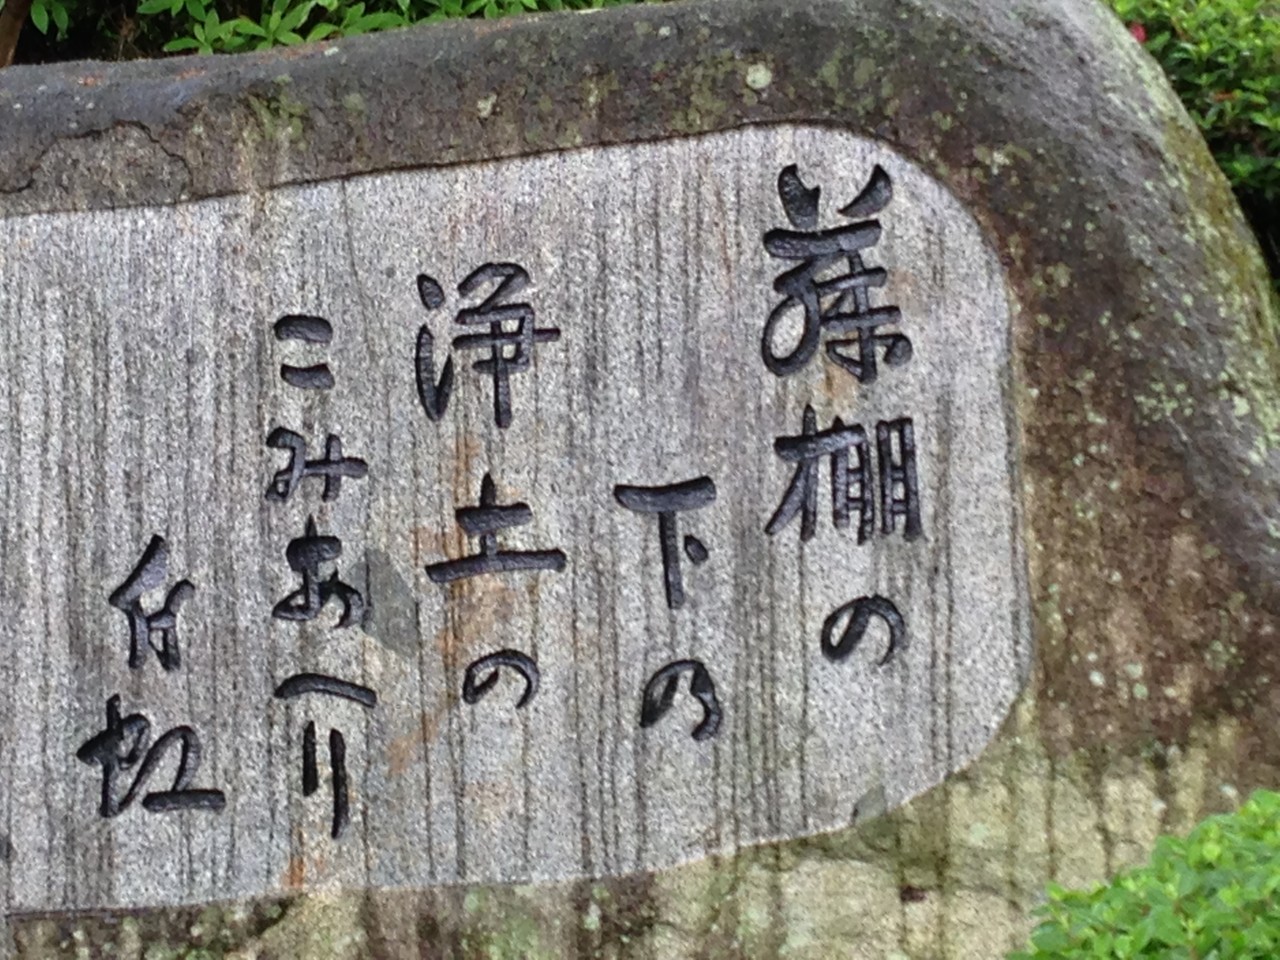 藤棚の
下乃
浄土の
こみあへり